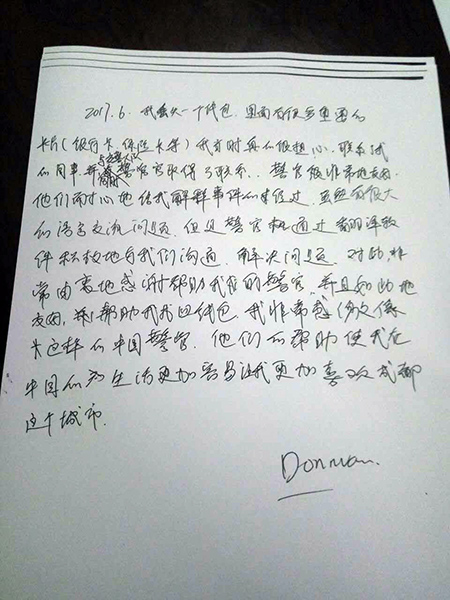 2017.6. 我丢失一个钱包,里面有很多重要的
卡片(银行卡,保险卡等)我当时真的很担心,联系我
的同事,并与警官取得了联系.. 警官极非常地友好,
他们耐心地给我解释事件的经过,虽然有很大
的语言交流问题,但是警官都通过翻译软
件积极地与我们沟通,解决问题,对此,非
常由衷地感谢帮助我的警官,并且如此地
友好,帮助我找回钱包,我非常感
卡这样的中国警官,他们的帮助使我在
中国的生活更加容易让我更加喜欢成都
这个城市.
Donman.